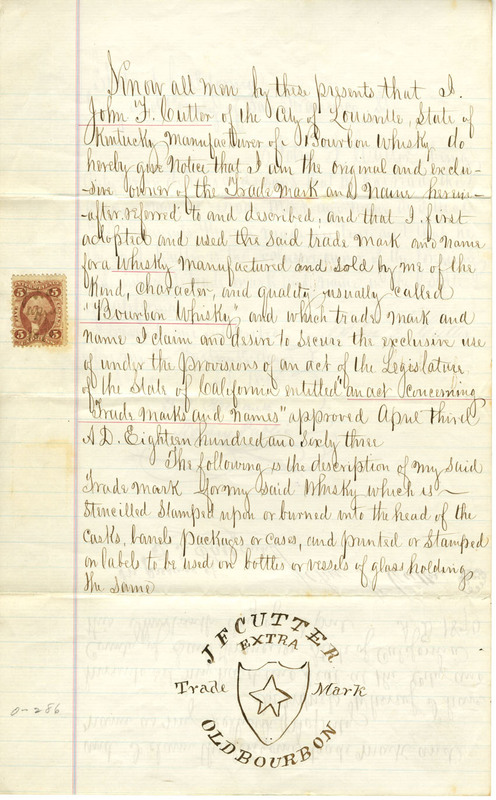 Know all men by these presents that I.
John F. Cutter of the City of Louisville, State of
Kentucky Manufacturer of Bourbon Whisky, do
hereby give Notice that I am the original and exclu-
-sive owner of the Trade Mark and Name herein-
-after referred to and described, and that I first
adopted and used the said trade mark and name
for a whisky manufactured and sold by me of the
Kind, Character, and quality usually called
"Bourbon Whisky" and which trade mark and
name I claim and desire to secure the exclusive use
of under the provisions of an act of the Legislature
of the State of California entitled "an act concerning
Trade Marks and Names" approved April third
A D. Eighteen hundred and sixty three
The following is the description of my said
Trade mark for my said Whisky which is
Stencilled Stamped upon or burned into the head of the
Casks, barrels packages or cases, and printed or Stamped
on label to be used on bottles or vessels of glass holding
the same
J F CUTTER
EXTRA
Trade Mark
OLD BOURBON
5 5
0-286